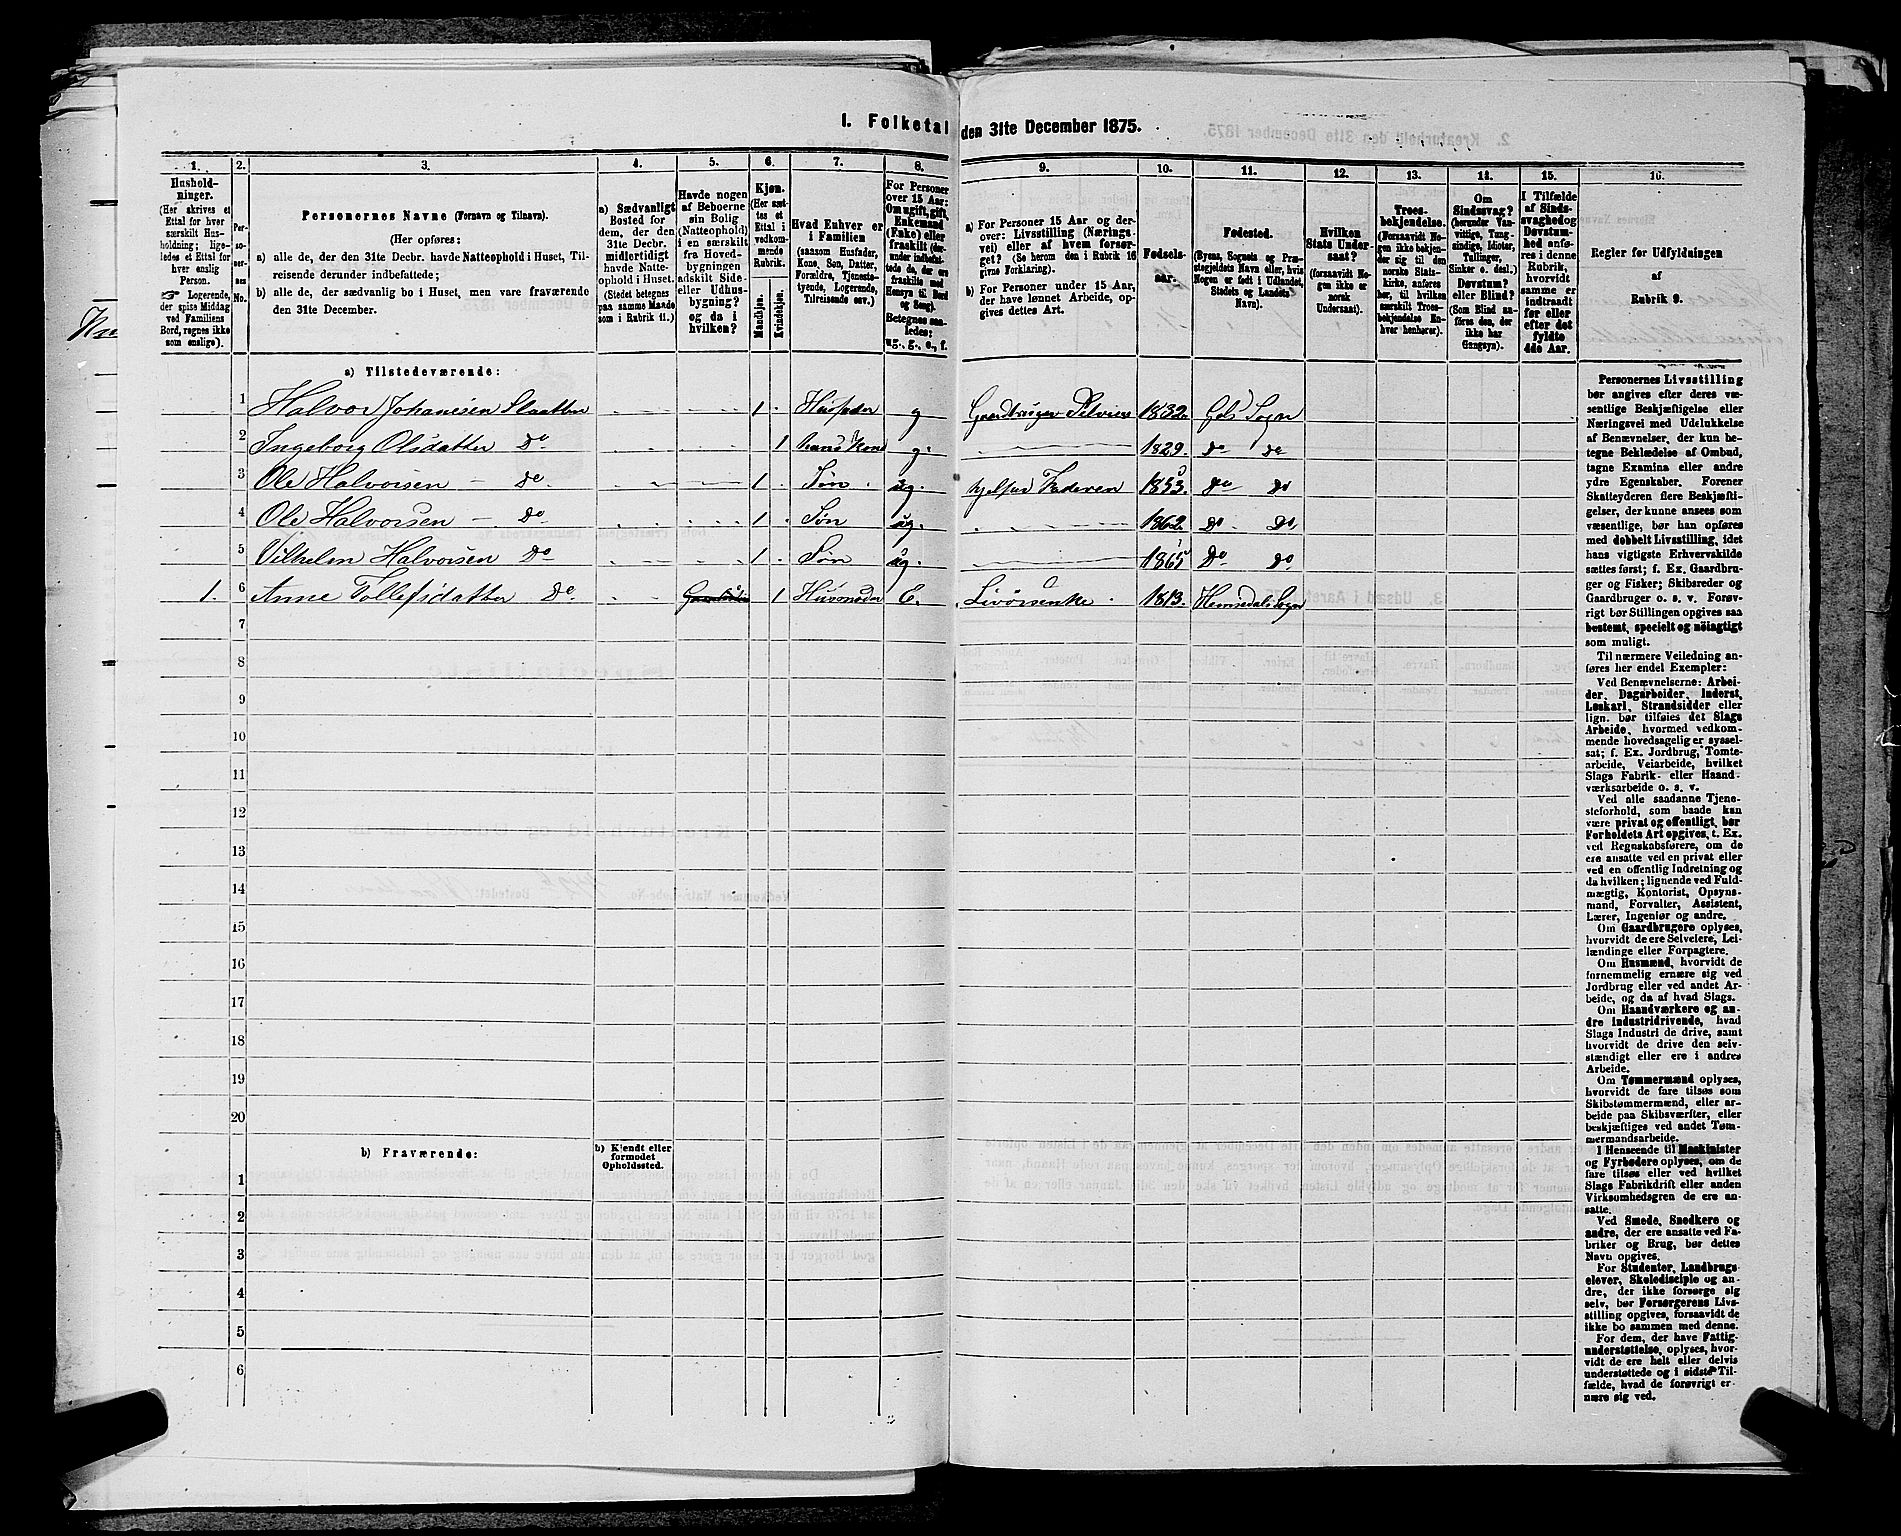 I. Folketal den 31te December 1875.
1. 2. 3. 4. 5. 6. 7. 8. 9. 10. 11. 12. 13. 14. 15. 16.
Hushold-
ninger.
(Her skrives et
Ettal for hver
særskilt Hus-
holdning; lige-
ledes et Ettal for
hver enslig
Person.
☞ Logerende,
der spise Middag
ved Familiens
Bord, regnes ikke
som enslige).
Per-
so-
ner-
nes
No.
Personernes Navne (Fornavn og Tilnavn).
(Her opføres:
a) alle de, der den 31te Decbr. havde Natteophold i Huset, Til-
reisende derunder indbefattede;
b) alle de, der sædvanlig bo i Huset, men vare fraværende
den 31te December.
a) Sædvanligt
Bosted for
dem, der den
31te Decbr.
midlertidigt
havde Natte-
ophold i Huset.
(Stedet betegnes
paa samme Maade
som i Rubrik 11.)
Havde nogen
af Beboerne
sin Bolig
(Natteophold)
i en særskilt
fra Hoved-
bygningen
adskilt Side-
eller Udhus-
bygning?
og da i
hvilken?
Kjøn.
(Her sæt-
tes et
Ettal i
vedkom-
mende
Rubrik.
Mandkjøn.
Kvindekjøn.
Hvad Enhver er
i Familien
(saasom Husfader,
Kone, Søn, Datter,
Forældre, Tjeneste-
tyende, Logerende,
Tilreisende osv.)
For Personer
over 15 Aar:
Om ugift, gift,
Enkemand
(Enke) eller
fraskilt (der-
under indbefat-
tede de, der ere
fraskilte med
Hensyn til Bord
og Seng).
Betegnes saa-
ledes:
ug., g., e., f.
a) For Personer 15 Aar og der-
over: Livsstilling (Nærings-
vei) eller af hvem forsør-
get? (Se herom den i Rubrik 16
givne Forklaring).
b) For Personer under 15 Aar,
der have lønnet Arbeide, op-
gives dettes Art.
Fødsels-
aar.
Fødested.
(Byens, Sognets og Præ-
stegjeldets Navn eller, hvis
Nogen er født i Udlandet,
Stedets og Landets
Navn).
Hvilken
Stats Under-
saat?
(forsaavidt No-
gen ikke er
norsk
Undersaat).
Troes-
bekjendelse.
(Forsaavidt No-
gen ikke bekjen-
der sig til den
norske Stats-
kirke, anføres
her, til hvilken
særskilt Troes-
bekjendelse En-
hver henhører).
Om
Sindssvag?
(herunder Van-
vittige, Tung-
sindige, Idioter,
Tullinger,
Sinker o. desl.)
Døvstum?
eller Blind?
(Som Blind an-
føres den, der
ikke har
Gangsyn).
I Tilfælde
af Sinds-
svaghed og
Døvstum-
hed anfø-
res i denne
Rubrik,
hvorvidt
samme er
indtraadt
før eller
efter det
fyldte
4de Aar.
Regler for Udfyldningen
af
Rubrik 9.
a) Tilstedeværende:
1 Halvor Johanesen Slaatten 1 Husfader g Gaardbruger Selveier 1832. Gols Sogn
2 Ingeborg Olsdatter Do 1 hans Kone g. 1829. Do Do
3 Ole Halvorsen — Do. 1 Søn ug. hjelper Faderen 1853. Do Do
4 Ole Halvorsen — Do. 1 Søn ug. 1862. Do Do.
5 Vilhelm Halvorsen Do 1 Søn ug. 1865 Do Do.
1. 6 Anne Tollefsdatter Do. 1 Husmoder E. Livørsenke 1813. Hemsedals Sogn
7
8
9
10
11
12
13
14
15
16
17
18
19
20
b) Fraværende:
b) Kjendt eller
formodet
Opholdssted.
1
2
3
4
5
6
Personernes Livsstilling
bør angives efter deres væ-
sentlige Beskjæftigelse eller
Næringsvei med Udelukkelse
af Benævnelser, der kun be-
tegne Beklædelse af Ombud,
tagne Examina eller andre
ydre Egenskaber. Forener
Skatteyderen flere Beskjæfti-
gelser, der kunne ansees som
væsentlige, bør han opføres
med dobbelt Livsstilling, idet
hans vigtigste Erhvervskilde
sættes først; f. Ex. Gaardbru-
ger og Fisker; Skibsreder og
Gaardbruger o. s. v. Forøv-
rigt bør Stillingen opgives saa
bestemt, specielt og nöiagtigt
som muligt.
Til nærmere Veiledning an-
føres her endel Exempler:
Ved Benævnelserne: Arbei-
der, Dagarbeider, Inderst,
Løskarl, Strandsidder eller
lign. bør tilføies det Slags
Arbeide, hvormed vedkom-
mende hovedsagelig er syssel-
sat; f. Ex. Jordbrug, Tomte-
arbeide, Veiarbeide, hvilket
Slags Fabrik- eller Haand-
værksarbeide o. s. v.
Ved alle saadanne Tjene-
steforhold, som baade kan
være privat og offentligt, bør
Forholdets Art opgives, t. Ex.
ved Regnskabsførere, om de
ere ansatte ved en privat eller
ved en offentlig Indretning og
da hvilken; lignende ved Fuld-
mægtig, Kontorist, Opsyns-
mand, Forvalter, Assistent,
Lærer, Ingeniør og andre.
Om Gaardbrugere oplyses,
hvorvidt de ere Selveiere, Lei-
lændinge eller Forpagtere.
Om Husmænd, hvorvidt de
fornemmelig ernære sig ved
Jordbrug eller ved andet Ar-
beide, og da af hvad Slags.
Om Haandværkere og an-
dre Industridrivende, hvad
Slags Industri de drive, samt
hvorvidt de drive den selv-
stændigt eller ere i andres
Arbeide.
Om Tømmermænd oplyses,
hvorvidt de fare tilsøs som
Skibstømmermænd, eller ar-
beide paa Skibsværfter, eller
beskjæftiges ved andet Tøm-
mermandsarbeide.
I Henseende til Maskinister
og Fyrbødere oplyses, om de
fare tilsøs eller ved hvilket
Slags Fabrikdrift eller anden
Virksomhedsgren de ere an-
satte.
Ved Smede, Snedkere og
andre, der ere ansatte ved Fa-
briker og Brug, bør dettes
Navn opgives.
For Studenter, Landbrugs-
elever, Skoledisciple og an-
dre, der ikke forsørge sig
selv, bør Forsørgerens Livs-
stilling opgives, forsaavidt de
ikke bo sammen med denne.
For dem, der have Fattig-
understøttelse, oplyses, hvor-
vidt de ere helt eller delvis
understøttede og i sidste Til-
fælde, hvad de forøvrigt er-
nære sig ved.